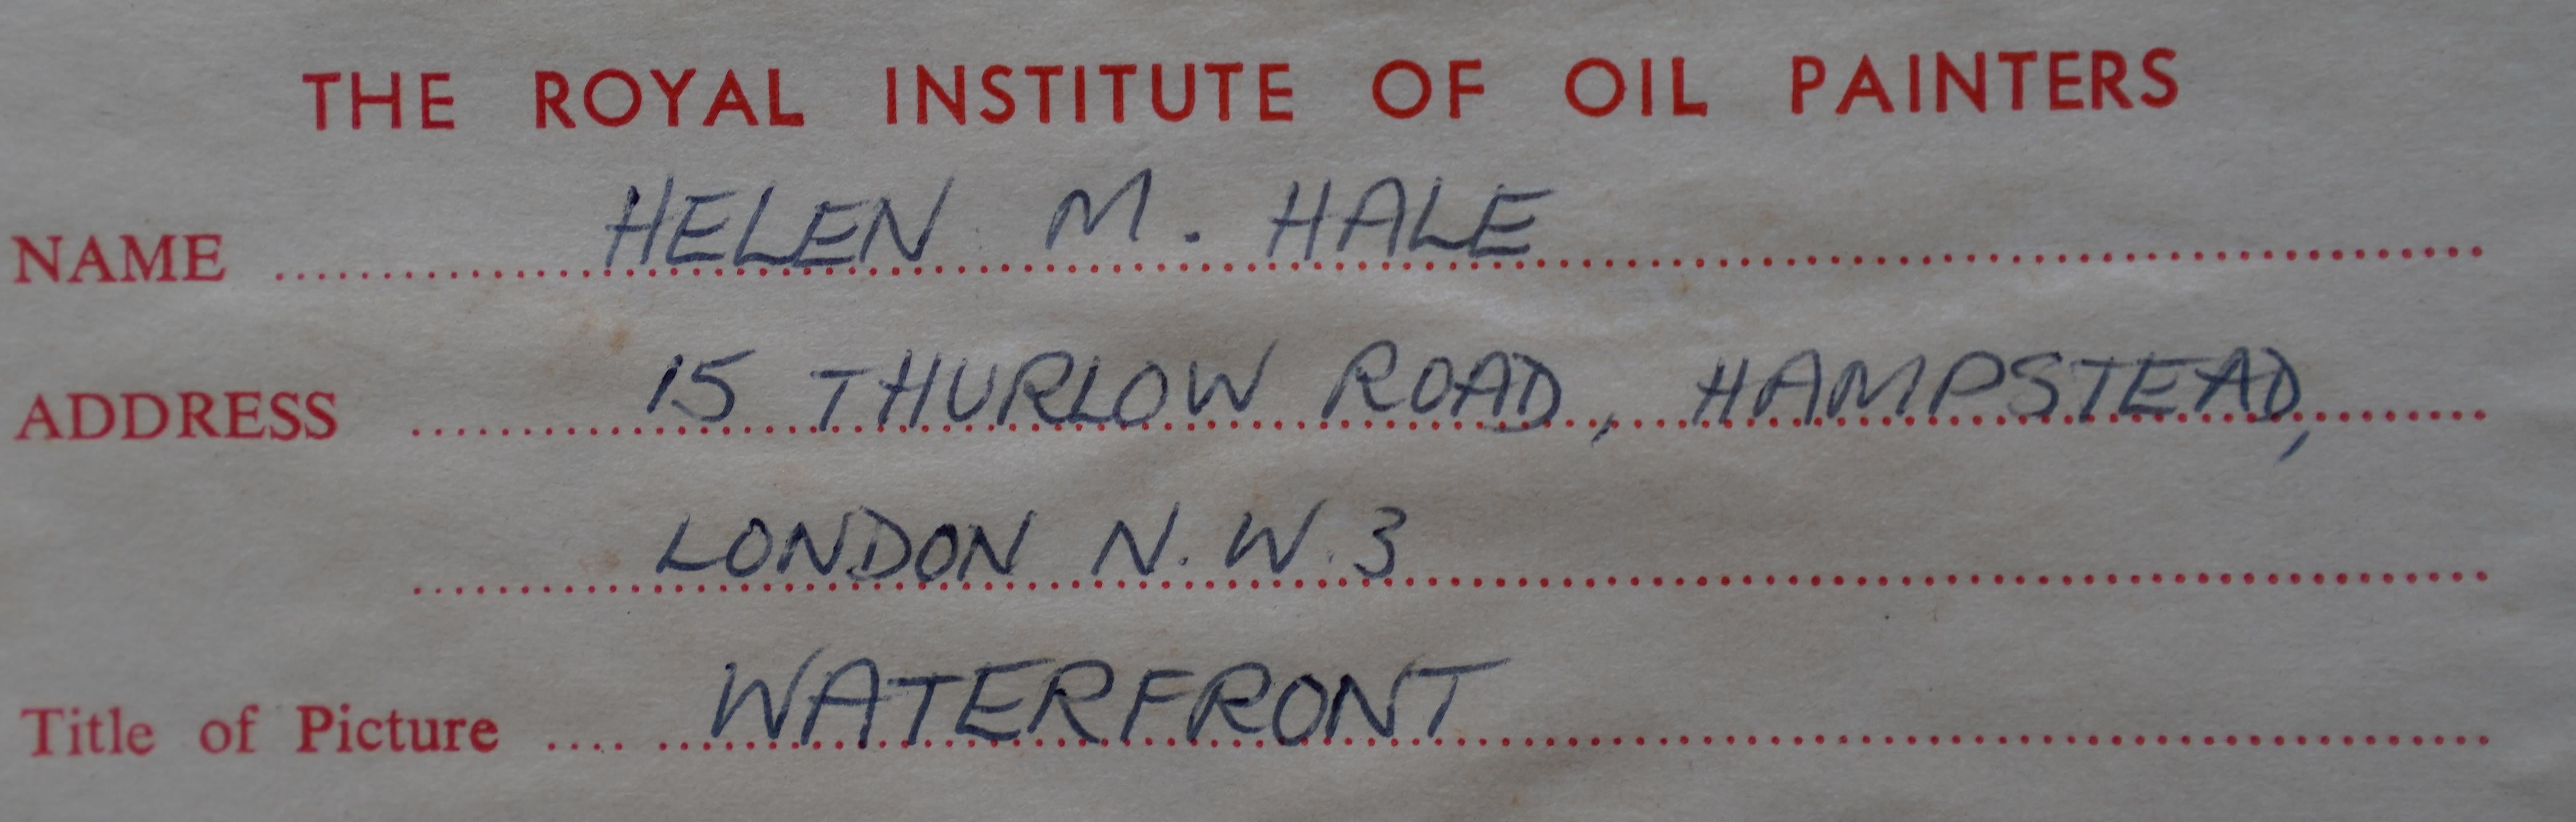 THE ROYAL INSTITUTE OF OIL PAINTERS
NAME HELEN M. HALE
ADDRESS 15 THURLOW ROAD, HAMPSTEAD,
LONDON N.W.3
Title of Picture WATERFRONT